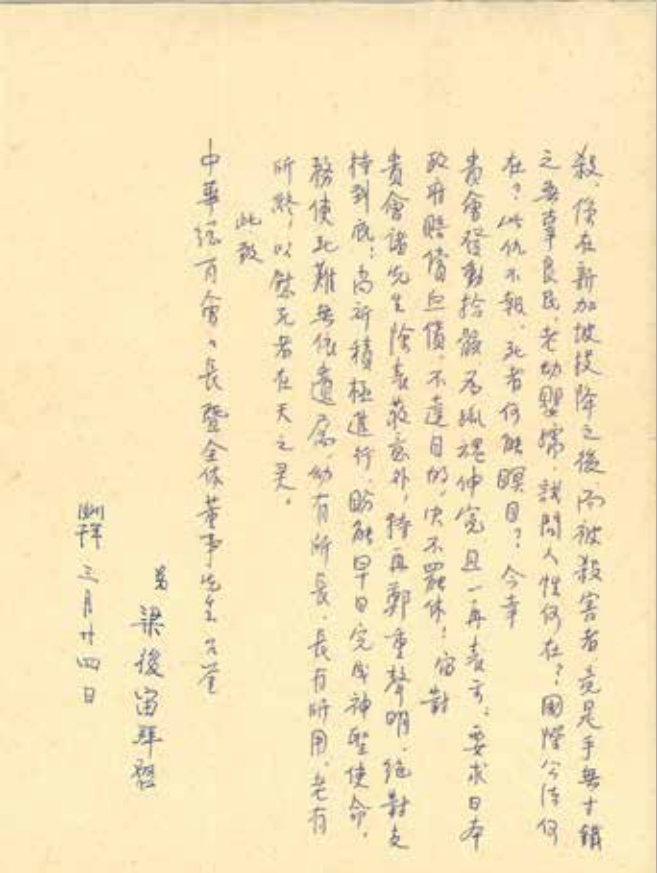 殺，係在新加坡投降之後，而被殺害者，竟是手無寸鐵
之無辜良民，老幼嬰孺，試問人性何在？國際公法何
在？此仇不報，死者何能瞑目？今幸
貴會發動拾骸為孤魂伸冤且一再表示，要求日本
政府賠償血債，不達目的，决不罷休！宙對
貴會諸先生除表敬意外，特再鄭重聲明，絕對支
持到底；尚祈積極進行，盼能早日完成神聖使命，
務使死難無依遺屬，幼有所長，長有所用，老有
所終，以慰死者在天之灵。
此致
中華總商會會長暨全体董事先生公鑒
弟 梁後宙拜啓
三月廿四日